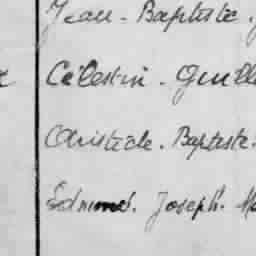 Jean - Baptiste.
Célestin - Guill
Aristide. Baptiste.
Edmond. Joseph. Ma